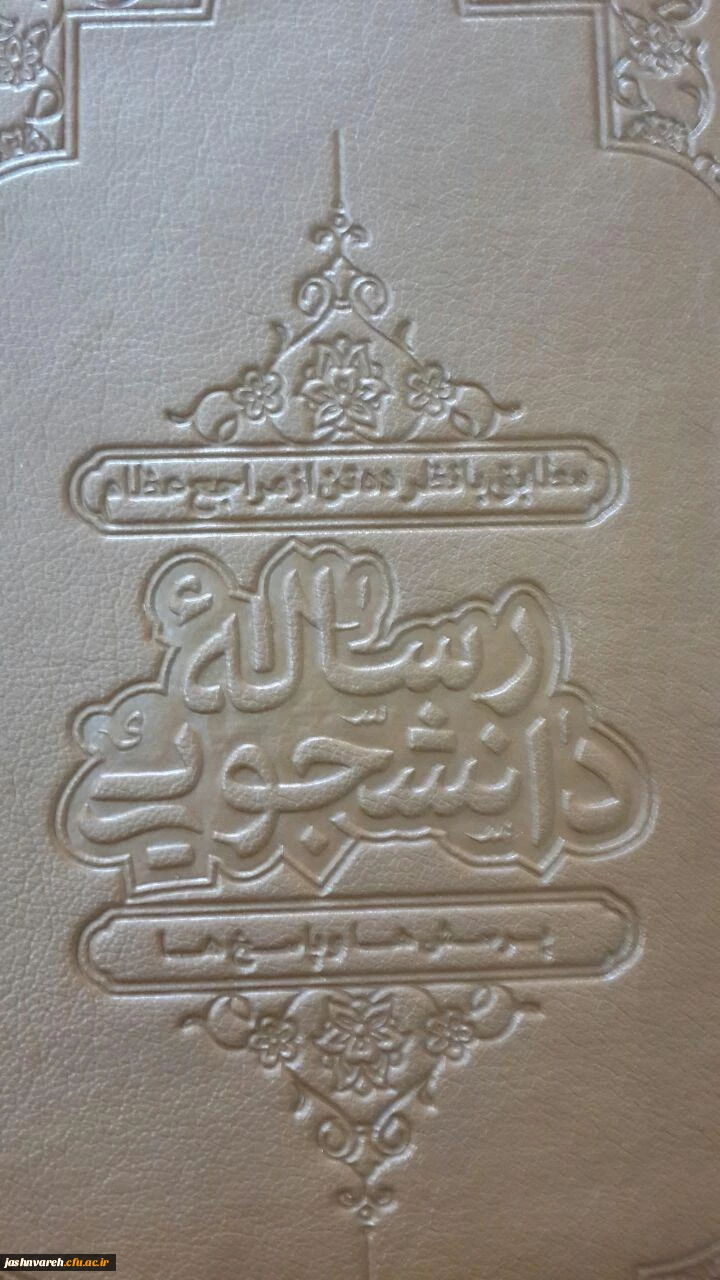 مطابق با نظر ده تن از مراجع عظام
رسالهٔ
دانشجویی
پرسش ها و پاسخ ها
jashnvareh.cfu.ac.ir